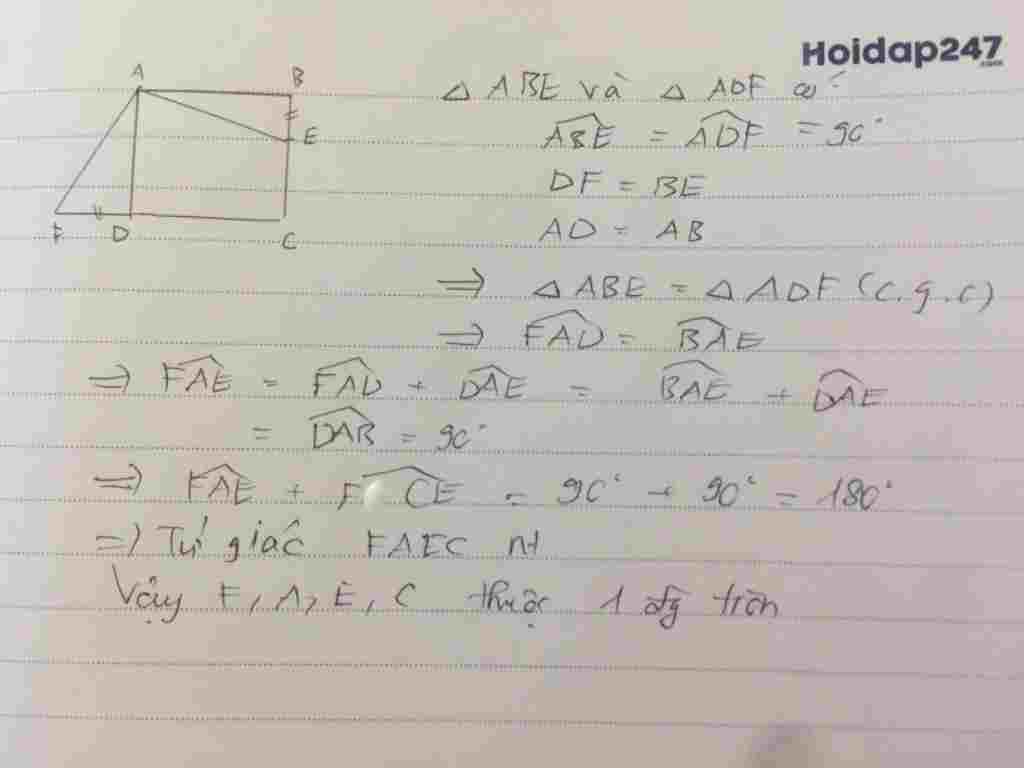 Hoidap247
.com
A
B
E
F
D
C
△ ABE và △ ADF có:
\widehat{ABE} = \widehat{ADF} = 90°
DF = BE
AD = AB
⇒ △ ABE = △ ADF (c.g.c)
⇒ \widehat{FAD} = \widehat{BAE}
⇒ \widehat{FAE} = \widehat{FAD} + \widehat{DAE} = \widehat{BAE} + \widehat{DAE}
= \widehat{DAB} = 90°
⇒ \widehat{FAE} + \widehat{FCE} = 90° + 90° = 180°
⇒ Tứ giác FAEC nt
Vậy F, A, E, C thuộc 1 đg tròn